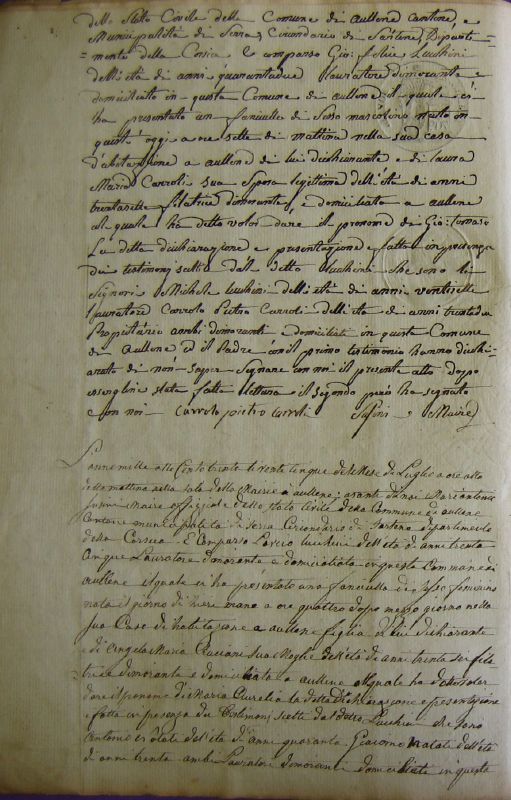 dello Stato Civile della Comune di aullene Cantone, e
Municipalità di Serra, Circondario di Sartene, Diparti-
=mento della Corsica È comparso Gio: felice Lucchini
dell'età di anni quarantadue Lavratore dimorante e
domiciliato in questa Comune di aullene il quale ci
ha presentato un fanciullo di sesso mascolino nato in
quest'oggi a ore sette di mattina nella sua casa
d'abitazione a aullene di lui dichiarante e di
Maria Carroli sua sposa legittima dell'età di anni
trentasette filatrice dimorante, e domiciliata a aullene
al quale ha detto voler dare il pronome di Gio: tomaso
La detta dichiarazione e presentazione è fatta in presenza
dei testimonj scelti dal detto Lucchini che sono li
Signori Michele Lucchini dell'età di anni ventisette
Lavratore Carrolo Pietro Carroli dell'età di anni trentadue
Proprietario ambi dimoranti e domiciliati in questa Comune
di Aullene ed il Padre con il primo testimonio hanno dichi-
arato di non saper segnare con noi il presente atto dopo
essergline stata fatta lettura e il segondo però ha segnato
e con noi Carrolo pietro carroli Susini, Maire
L'anne mille otto Cento trenta il vente cinque del Mese di Luglio a ore otto
della mattina nella sala della Mairie a aullene; avante di noi Marcantonio
Susini Maire offiziale dello stato Civile della Commune di aullene
Cantone municipalità di Serra Circondario di Sartene dipartimento
della Corsica È Comparso Lucchini dell'età di anni trenta
Cinque Lavratore dimorante e domiciliato in questa Commune di
aullene il quale ci ha presentato una fanciulla di sesso feminino
nata il giorno di a ore quattro dopo mezzo giorno nella
sua Casa di habitazione a aullene figlia di lui dichiarante
e di Angela Maria sua Moglie dell'età di anni trenta sei fila
trice dimorante e domiciliata a aullene al quale ha detto voler
dare il pronome di Maria Aurelia la detta Dichiarazione e presentazione
è fatta in presenza dei testimonj scelti dal detto Lucchini che sono
Antonio dell'età di anni quaranta Giacomo Natali dell'età
di anni trenta ambi Lavratori dimoranti domiciliati in questa